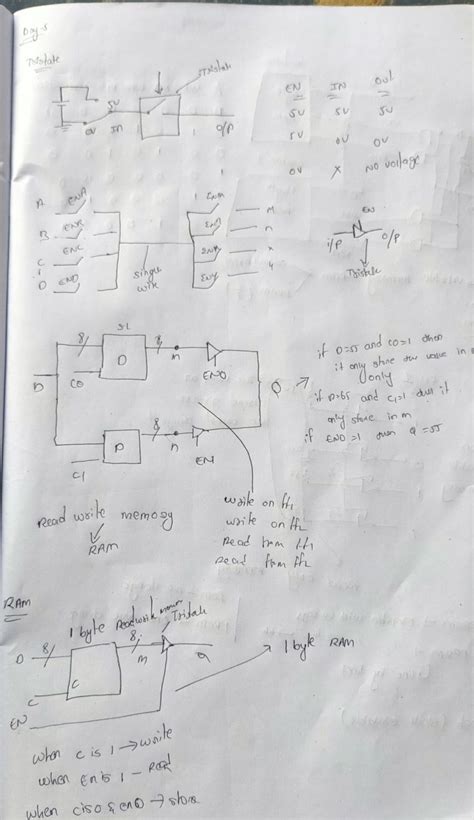 Day-5
Tristate
Tristate
5V
0V In
O/P
EN IN OUT
5V 5V 5V
5V 0V 0V
0V X No voltage
A ENA
B ENB
C ENC
D END
single wire
ENM M
n
ENX x
ENY y
EN
i/p O/P
Tristate
D
8/
D
8/
m
EN0
C0
8/
D
8/
n
EN
C1
Q
if D=55 and C0=1 then
it only store the value in
only
if D=65 and C1=1 then it
only store in m
if EN0=1 then Q=55
Read write memory
RAM
write on ff1
write on ff2
Read from ff1
Read from ff2
RAM
1 byte Read write
Tristate
D 8/
C
C
8/
m
Q
EN
1 byte RAM
when C is 1 → write
when En is 1 - Read
when C is 0 & en 0 → store